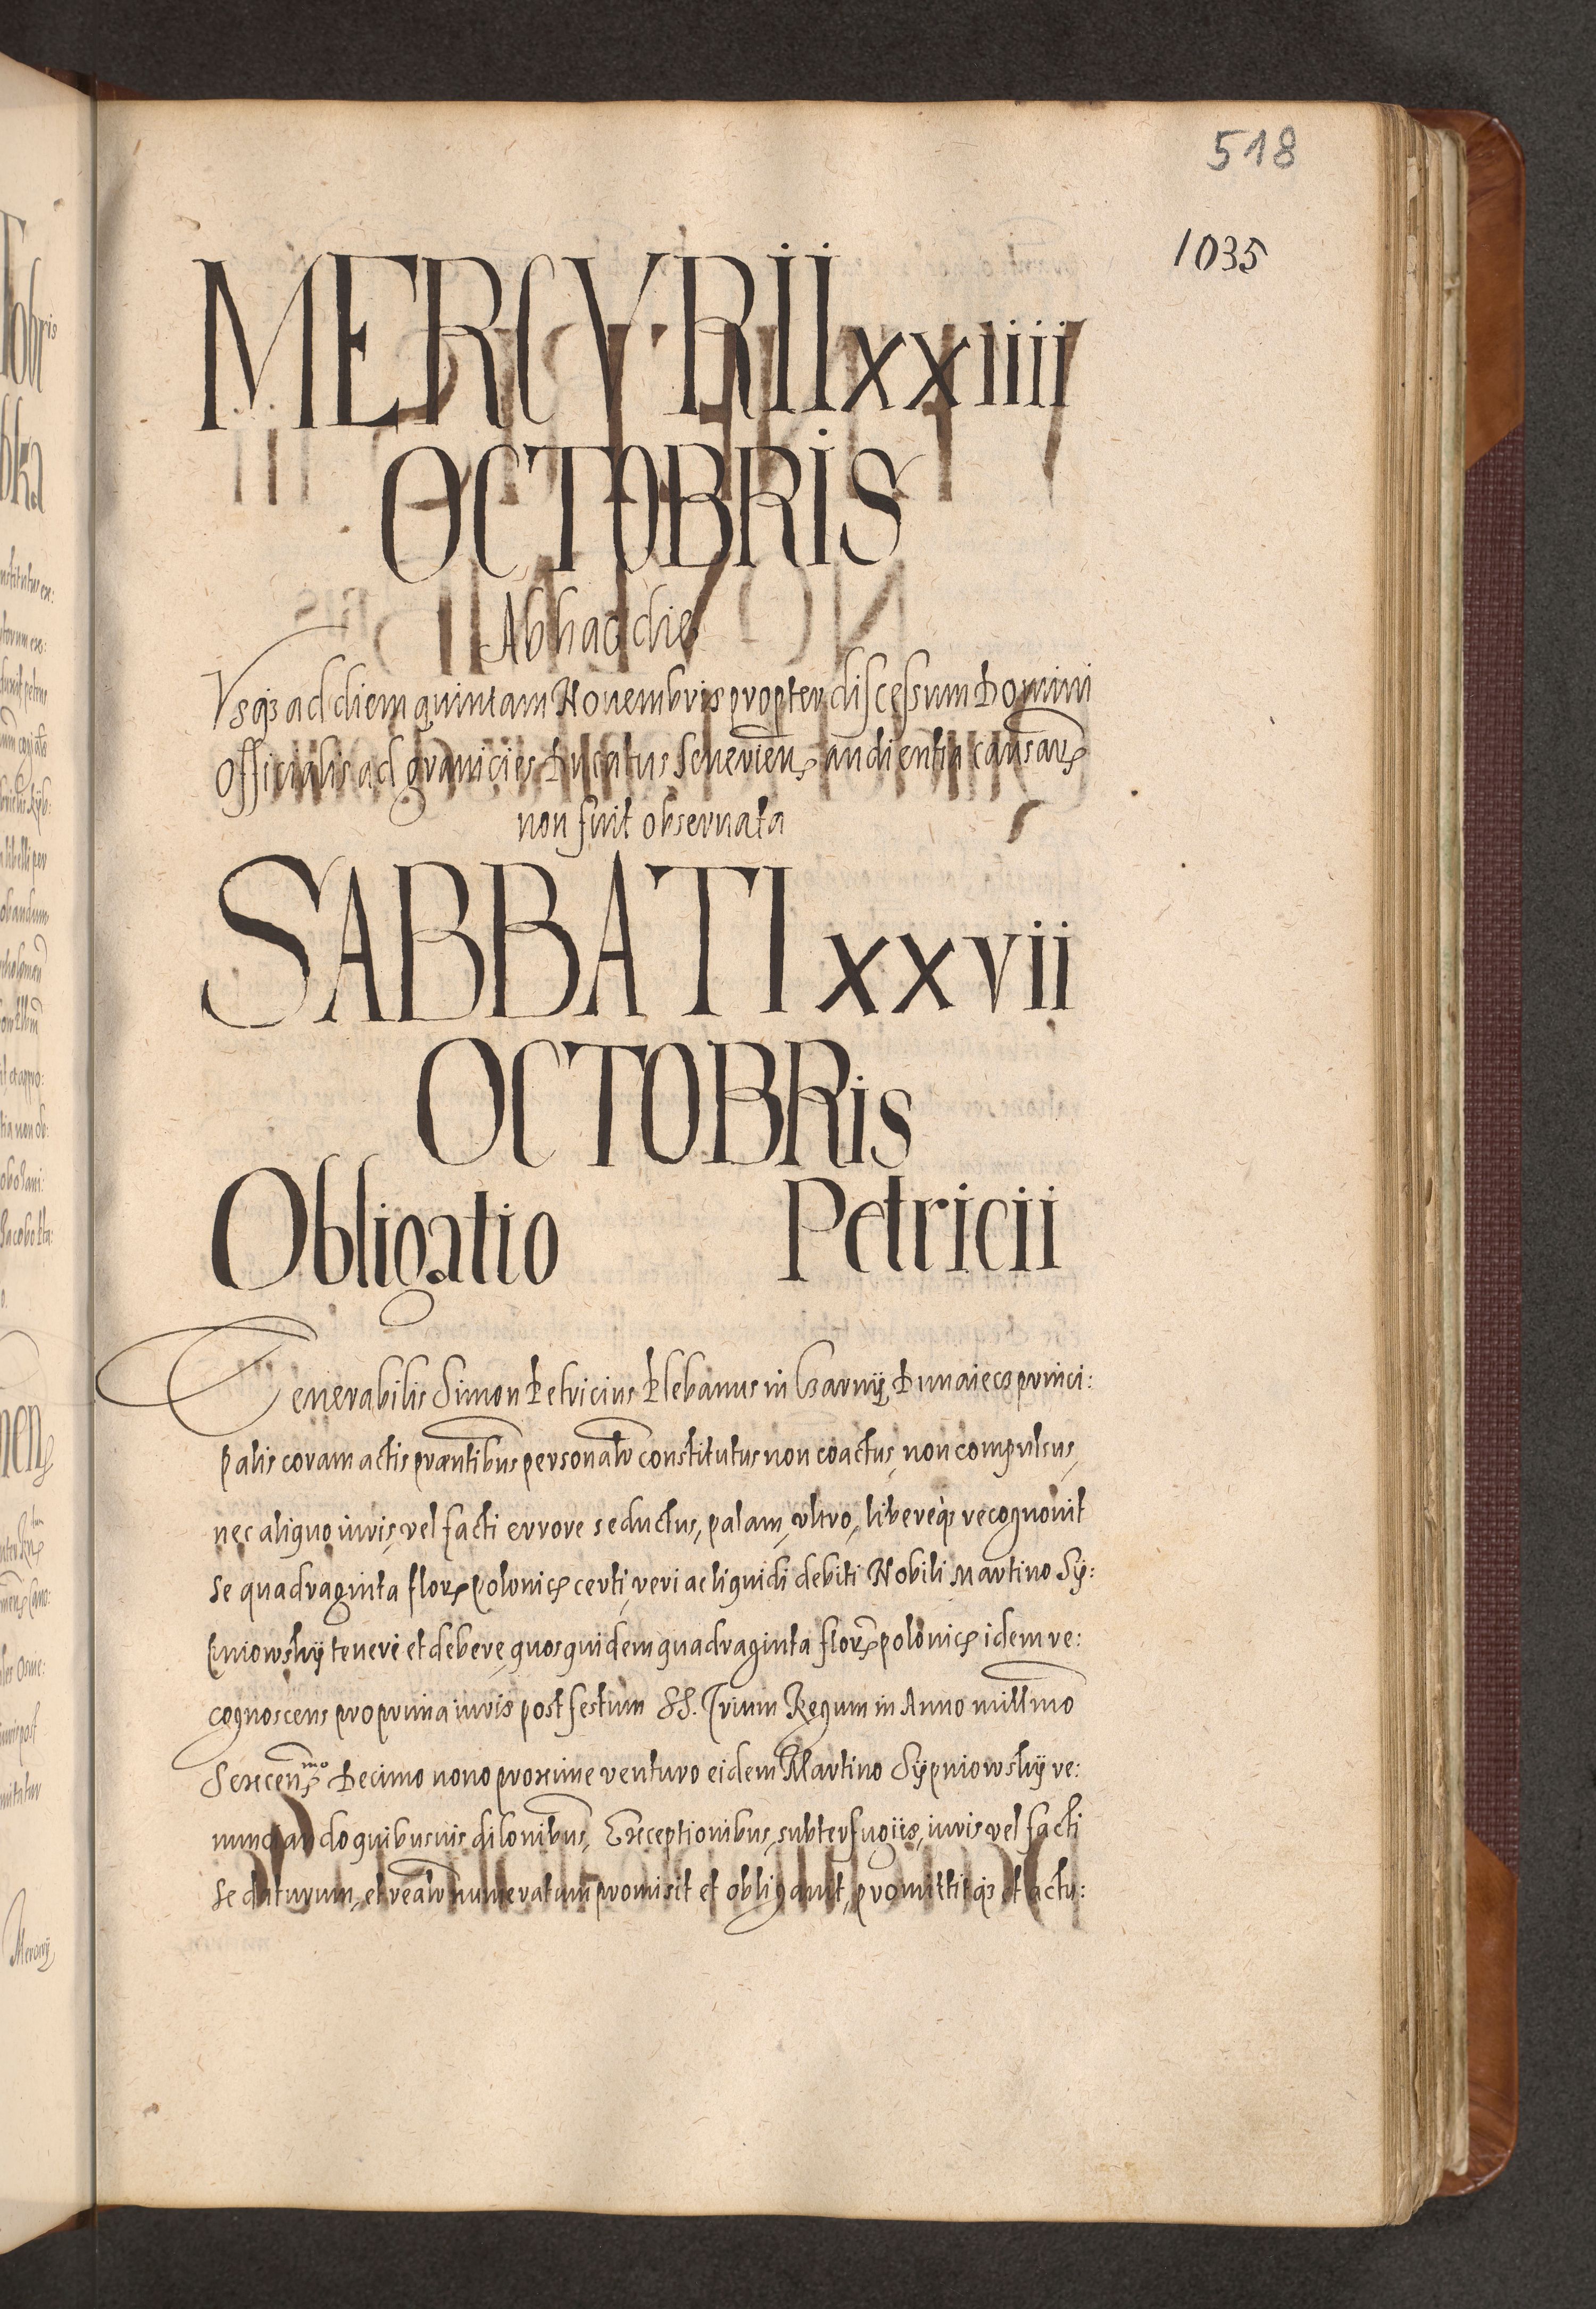 518
1035
MERCVRII xxiiii
OCTOBRIS
Ab hac die
Vsq3 ad diem quintam Nouembris propter discessum Domini
Officialis ad granicies Ducatus Seuerien audientia causar
non fuit obseruata
SABBATI xxvii
OCTOBRis
Obligatio Petricii
Venerabilis Simon Petricius Plebanus in Czarnÿ Dunaiecz princi:
palis coram actis præntibus personalr constitutus non coactus, non compulsus,
nec aliquo iuris, vel facti errore seductus, palam, vltro, libereq3 recognouit
se quadraginta flor polonic certi, veri ac liquidi debiti Nobili Martino Sÿ:
pniowskÿ teneri et debere, quos quidem quadraginta flor polonic idem re:
cognoscens pro prima iuris post festum SS. Trium Regum in Anno millmo
Sexcen mo Decimo nono proxime venturo eidem Martino Sÿpniowskÿ re:
nunciando quibusuis dilonibus, Exceptionibus, subterfugiis, iuris vel facti
se daturum, et realr numeraturum promisit et obligauit, promittitq3 et actu: